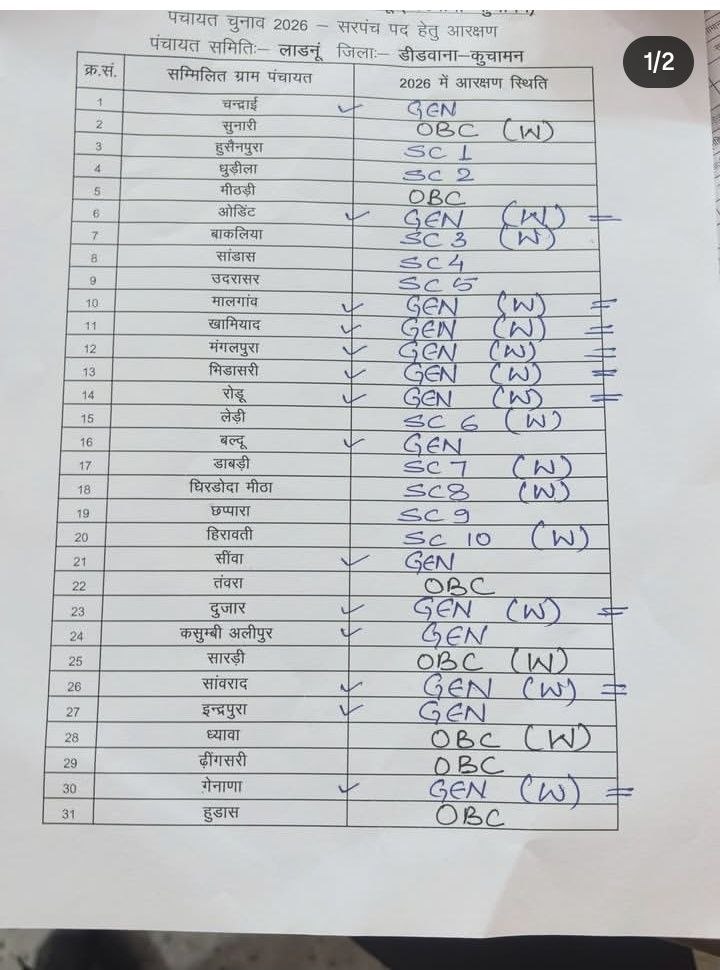 पंचायत चुनाव 2026 – सरपंच पद हेतु आरक्षण
पंचायत समितिः– लाडनूं जिलाः– डीडवाना–कुचामन
1/2
क्र.सं. सम्मिलित ग्राम पंचायत 2026 में आरक्षण स्थिति
1 चन्द्राई ✓ GEN
2 सुनारी OBC (W)
3 हुसैनपुरा SC 1
4 धुड़ीला SC 2
5 मीठड़ी OBC
6 ओडिंट ✓ GEN (W) =
7 बाकलिया SC 3 (W)
8 सांडास SC4
9 उदरासर SC 5
10 मालगांव ✓ GEN (W) =
11 खामियाद ✓ GEN (W) =
12 मंगलपुरा ✓ GEN (W) =
13 भिडासरी ✓ GEN (W) =
14 रोडू ✓ GEN (W) =
15 लेड़ी SC 6 (W)
16 बल्दू ✓ GEN
17 डाबड़ी SC 7 (W)
18 घिरडोदा मीठा SC8 (W)
19 छप्पारा SC 9
20 हिरावती SC 10 (W)
21 सींवा ✓ GEN
22 तंवरा OBC
23 दुजार ✓ GEN (W) =
24 कसुम्बी अलीपुर ✓ GEN
25 सारड़ी OBC (W)
26 सांवराद ✓ GEN (W) =
27 इन्द्रपुरा ✓ GEN
28 ध्यावा OBC (W)
29 ढ़ींगसरी OBC
30 ग़ेनाणा ✓ GEN (W) =
31 हुडास OBC